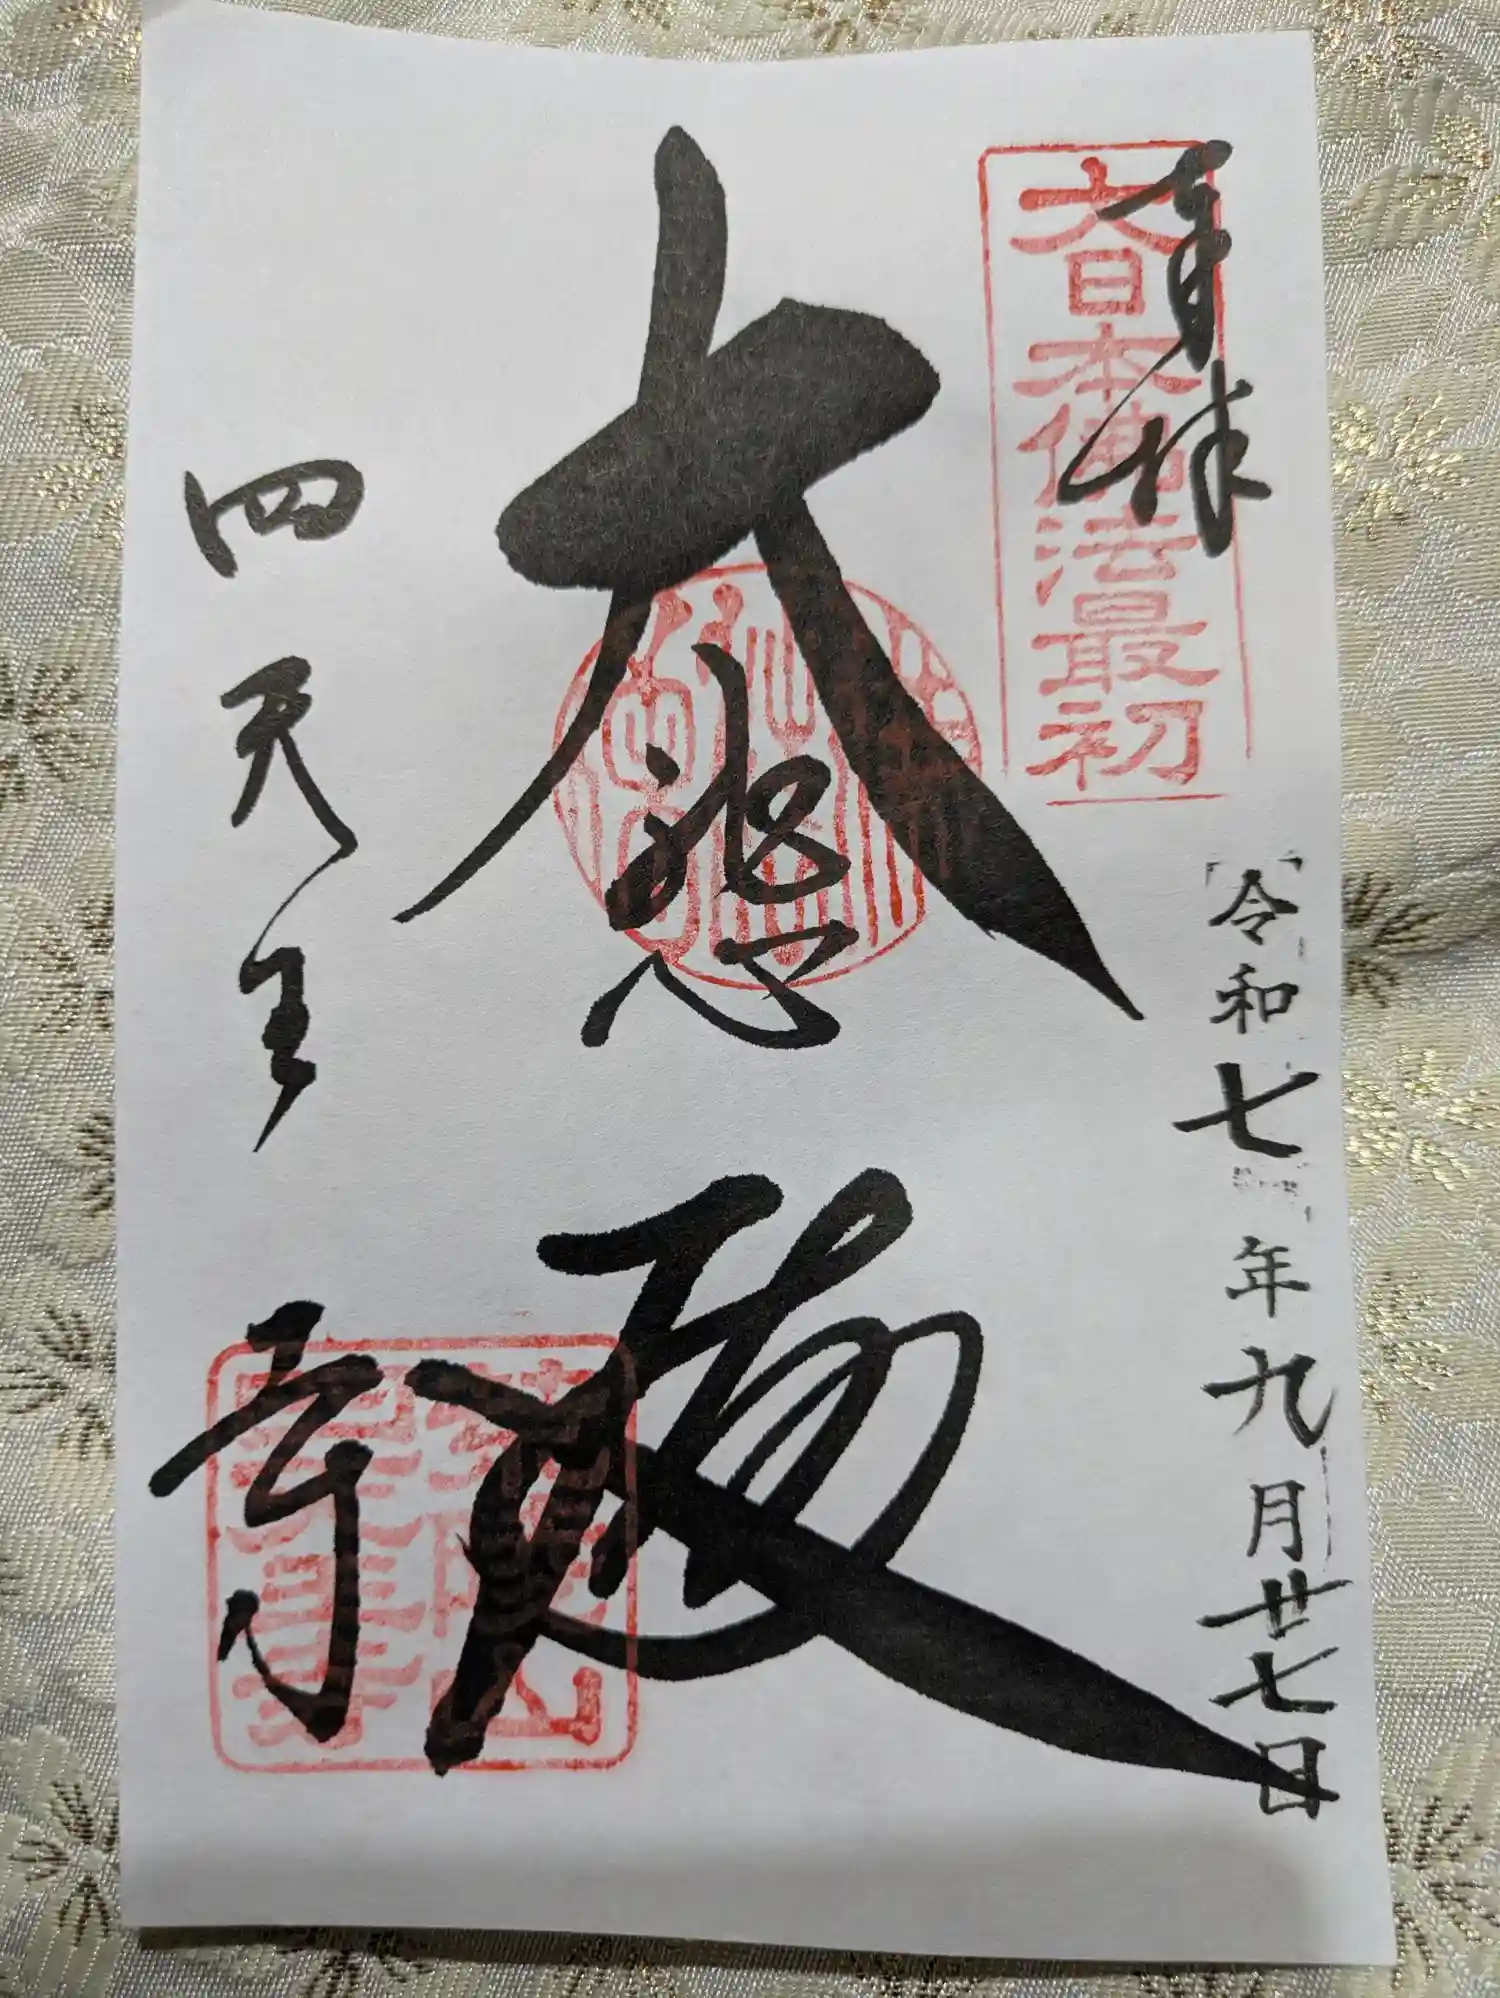 奉拝
大日本佛法最初
令和七年九月廿七日
大悲殿
四天王寺